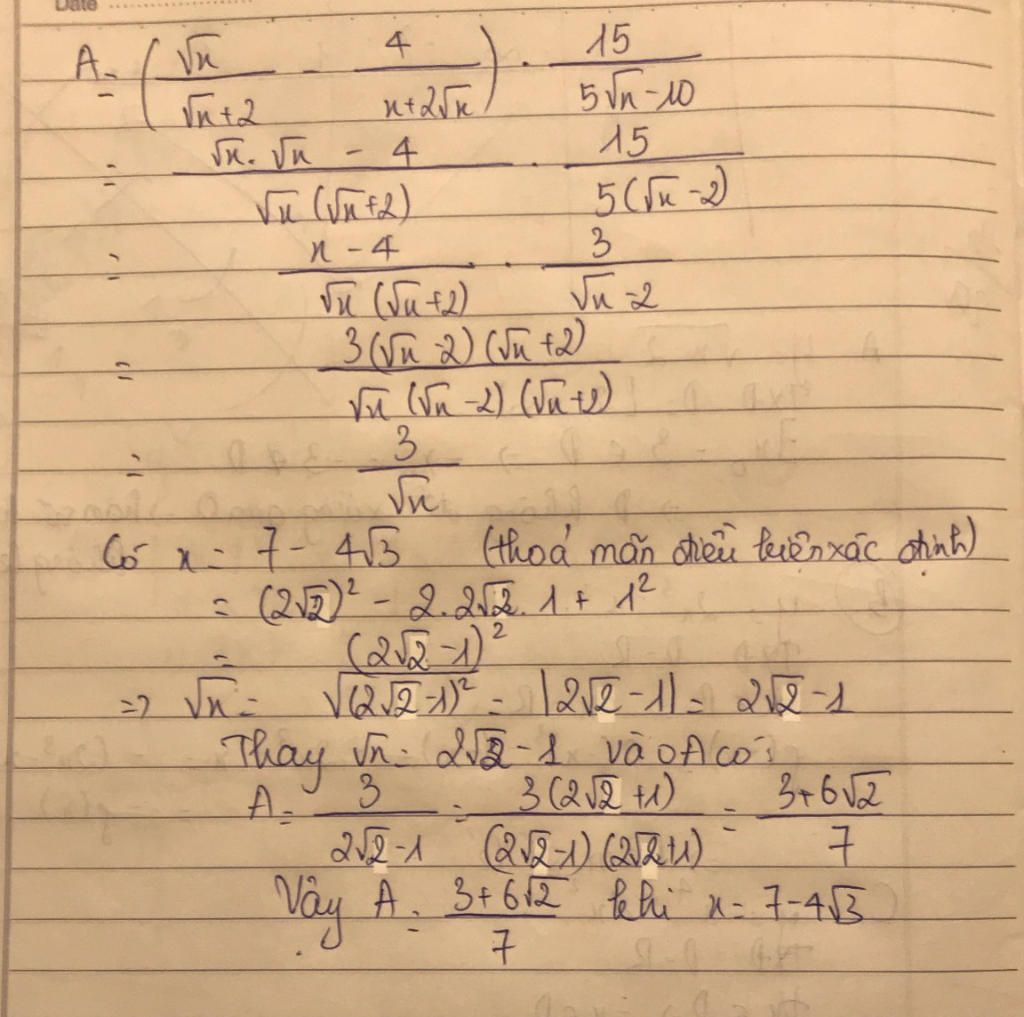 Date
A = (√x/(√x+2) - 4/(x+2√x)) · 15/(5√x-10)
= (√x.√x - 4)/(√x(√x+2)) · 15/(5(√x-2))
= (x-4)/(√x(√x+2)) · 3/(√x-2)
= 3(√x-2)(√x+2)/(√x(√x-2)(√x+2))
= 3/√x
Có x = 7 - 4√3 (thoả mãn điều kiện xác định)
= (2√2)² - 2.2√2.1 + 1²
= (2√2-1)²
=> √x = √(2√2-1)² = |2√2-1| = 2√2-1
Thay √x = 2√2-1 vào A có:
A = 3/(2√2-1) = 3(2√2+1)/((2√2-1)(2√2+1)) = (3+6√2)/7
Vậy A = (3+6√2)/7 khi x = 7-4√3